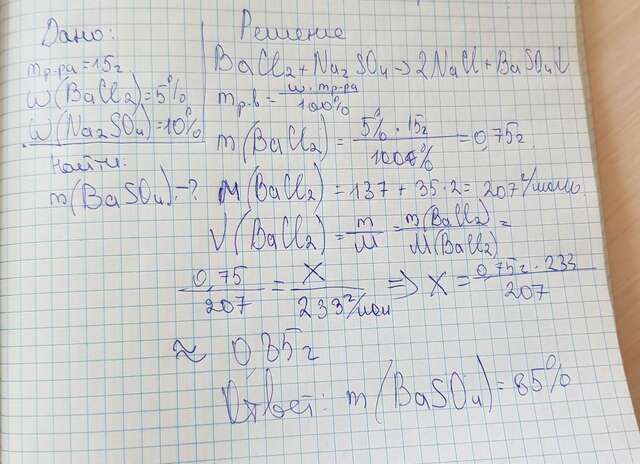 Дано:
mр-ра = 15г
ω(BaCl2) = 5%
ω(Na2SO4) = 10%
Найти:
m(BaSO4) - ?
Решение
BaCl2 + Na2SO4 → 2NaCl + BaSO4↓
mр.в = ω. mр-ра / 100%
m(BaCl2) = 5% · 15г / 100% = 0,75г
M(BaCl2) = 137 + 35·2 = 207 г/моль
ν(BaCl2) = m/M = m(BaCl2) / M(BaCl2) =
0,75 / 207 = X / 233 г/мол => X = 0,75г · 233 / 207
≈ 0,85г
Ответ: m(BaSO4) = 85%